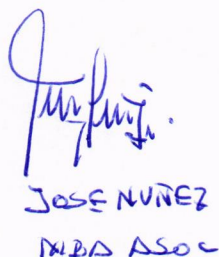 JOSE NUÑEZ
MBA ASOC